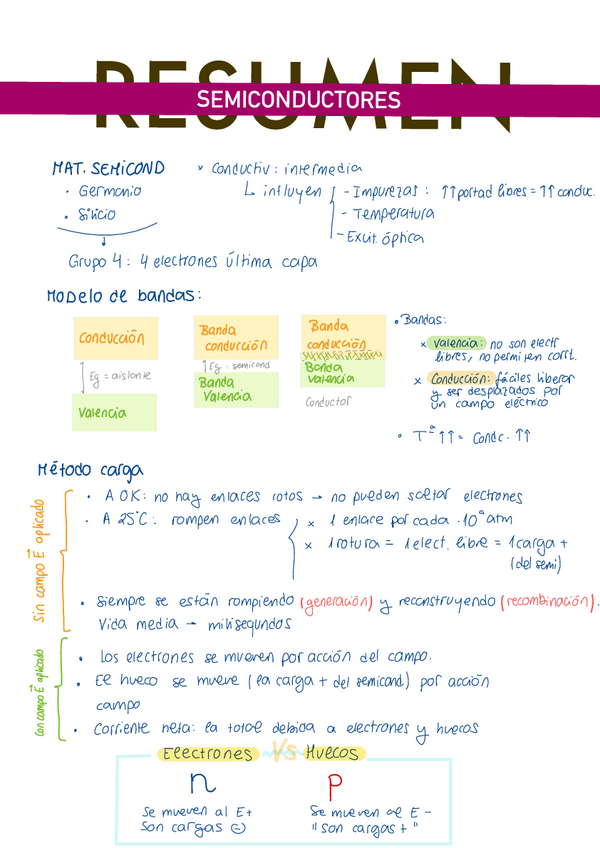 RESUMEN
SEMICONDUCTORES
MAT. SEMICOND
· Germanio
· Silicio
Grupo 4: 4 electrones última capa
× Conductiv: intermedia
↳ influyen
- Impurezas: ↑↑ portad libres = ↑↑ conduc.
- Temperatura
- Excit. óptica
Modelo de bandas:
Conducción
Eg = aislante
Valencia
Banda
conducción
Eg: semicond
Banda
Valencia
Banda
conducción
Banda
Valencia
Conductor
• Bandas:
× Valencia: no son electr
libres, no permiten corrt.
× Conducción: fáciles liberar
y ser desplazados por
un campo eléctrico
• Tª ↑↑ = Condc. ↑↑
Método carga
Sin campo E⃗ aplicado
· A 0K: no hay enlaces rotos → no pueden soltar electrones
· A 25°C: rompen enlaces
× 1 enlace por cada ·10ᵃ atm
× 1 rotura = 1 elect. libre = 1 carga +
(del semi)
· Siempre se están rompiendo (generación) y reconstruyendo (recombinación).
Vida media → milisegundos
Con campo E⃗ aplicado
· Los electrones se mueven por acción del campo.
· El hueco se mueve (la carga + del semicond) por acción
campo
· Corriente neta: la total debida a electrones y huecos
Electrones Vs Huecos
n
Se mueven al E+
Son cargas ⊖
p
Se mueven al E -
"son cargas + "